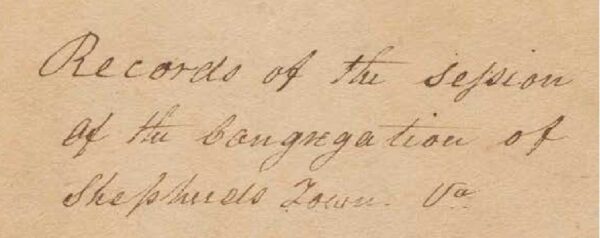 Records of the session
of the Congregation of
Shepherds Town. Va